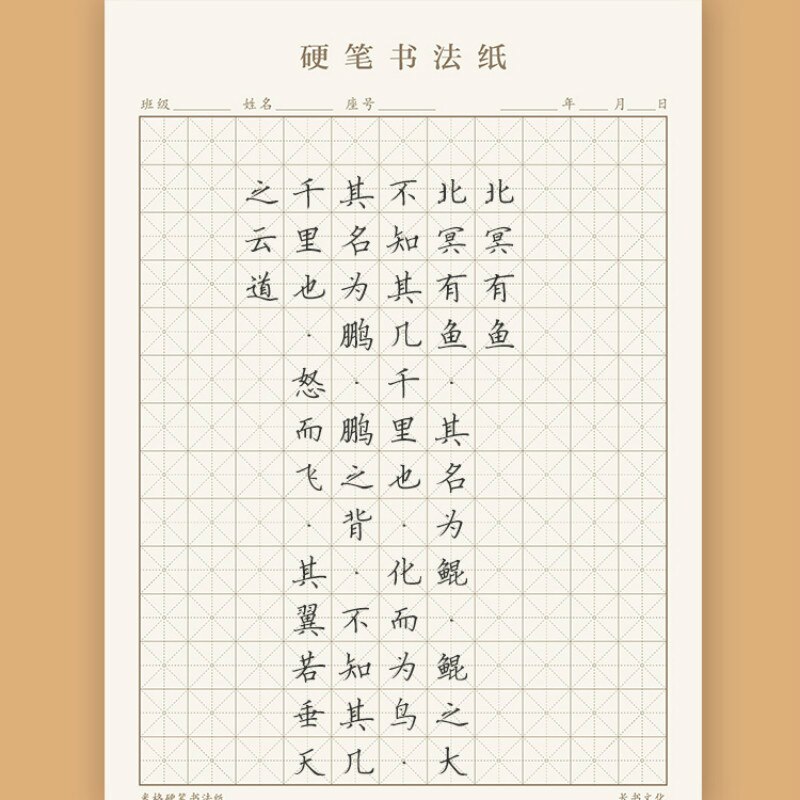 硬笔书法纸
班级______ 姓名______ 座号______ ______年___月___日
北冥有鱼
北冥有鱼·其名为鲲·鲲之大
不知其几千里也·化而为鸟·
其名为鹏·鹏之背·不知其几
千里也·怒而飞·其翼若垂天
之云道
米格硬笔书法纸